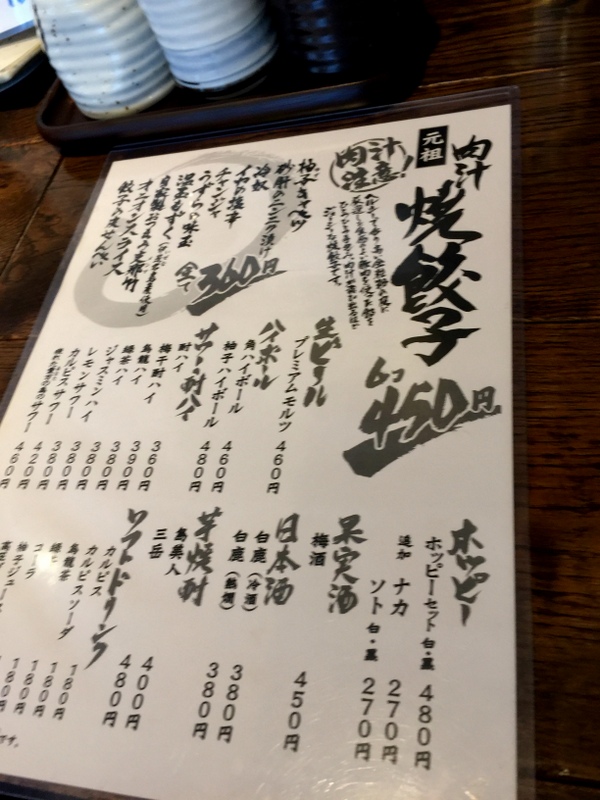 元祖
肉汁
焼餃子
6コ
450円
肉汁注意!
柚子きゃべつ
砂肝のニンニク漬け
冷奴
イカの塩辛
チャンジャ
うずらの味玉
温玉もずく
自家製おつまみ支那竹
オニオンスライス
餃子の皮せんべい
全て
360円
生ビール
プレミアムモルツ 460円
ハイボール
角ハイボール
柚子ハイボール 460円
サワー・酎ハイ 480円
酎ハイ
梅干酎ハイ 360円
烏龍ハイ 390円
緑茶ハイ 380円
ジャスミンハイ 380円
レモンサワー 380円
カルピスサワー 380円
420円
460円
ホッピー
ホッピーセット 白・黒 480円
追加 ナカ 270円
ソト 白・黒 270円
果実酒
梅酒 450円
日本酒
白鹿(冷酒) 380円
白鹿(熱燗) 380円
芋焼酎
島美人 400円
三岳 480円
ソフトドリンク
カルピス
カルピスソーダ 180円
烏龍茶 180円
緑茶 180円
コーラ 180円
柚子ジュース 180円
です。